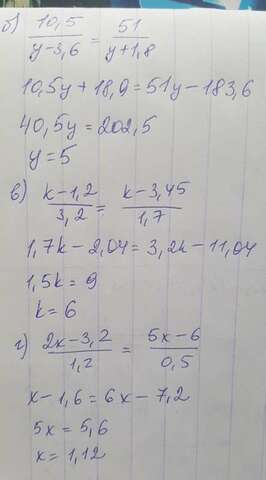 б) 10,5/(y-3,6) = 51/(y+1,8)
10,5y+18,9=51y-183,6
40,5y=202,5
y=5
в) (k-1,2)/3,2 = (k-3,45)/1,7
1,7k-2,04=3,2k-11,04
1,5k=9
k=6
г) (2x-3,2)/1,2 = (5x-6)/0,5
x-1,6=6x-7,2
5x=5,6
x=1,12